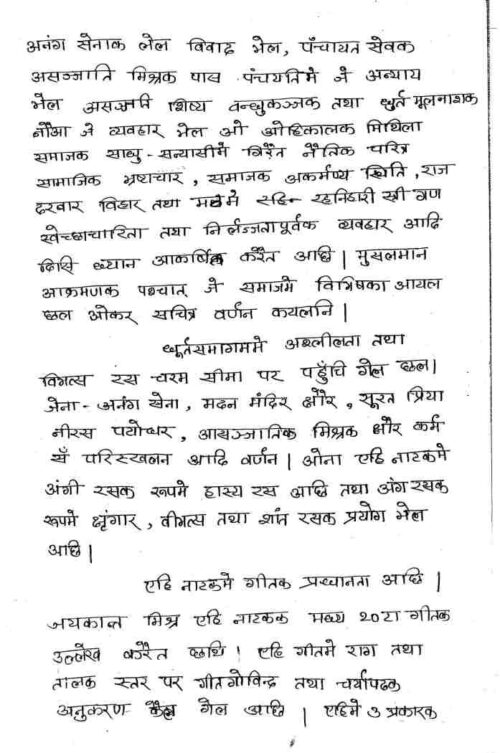 अनंग सेनाक लेल विवाद भेल, पंचायत सेवक
असज्जाति मिश्रक पास पंचयतिमे जे अन्याय
भेल असज्जाति शिष्य वन्धुकञ्जक तथा धुर्त मूलनाशक
नौआ जे व्यवहार भेल ओ ओहिकालक मिथिला
समाजक साधु-सन्यासीमे गिरैत नैतिक चरित्र
सामाजिक भ्रष्टाचार, समाजक अकर्मण्य स्थिति, राज
दरवार विहार तथा मठमे रहनिहारी स्त्री गण
स्वेच्छाचारिता तथा निर्लज्जतापूर्वक व्यवहार आदि
दिसि ध्यान आकर्षित करैत अछि। मुसलमान
आक्रमणक पश्चात् जे समाजमे विभिषिका आयल
छल ओकर सचित्र वर्णन कयलनि।
धूर्तसमागममे अश्लीलता तथा
विभत्स रस चरम सीमा पर पहुँचि गेल छल।
जेना- अनंग सेना, मदन मंदिर क्षौर, सूरत प्रिया
नीरस पयोधर, असज्जातिक मिश्रक क्षौर कर्म
सँ परिस्खलन आदि वर्णन। ओना एहि नाटकमे
अंगी रसक रूपमे हास्य रस अछि तथा अंग रसक
रूपमे श्रृंगार, वीभत्स तथा शांत रसक प्रयोग भेल
अछि।
एहि नाटकमे गीतक प्रधानता अछि।
जयकान्त मिश्र एहि नाटकक मध्य २०टा गीतक
उल्लेख करैत छथि। एहि गीतमे राग तथा
तालक स्तर पर गीतगोविन्द तथा चर्यापदक
अनुकरण कैल गेल अछि। एहिमे ३ प्रकारक